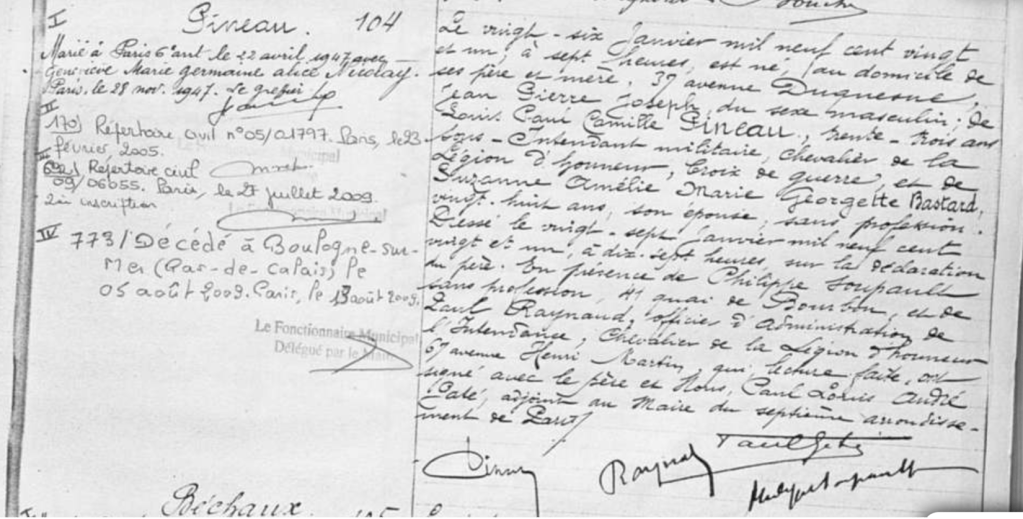 I
Pineau. 104
Marié à Paris 6e arrt le 22 avril 1947 avec
Geneviève Marie germaine alice Nicolay.
Paris, le 28 nov. 1947. Le greffier
II
170) Répertoire civil n°05/01797. Paris, le 23
février 2005.
Le Fonctionnaire Municipal
III
Répertoire civil
09/06655. Paris, le 27 juillet 2009.
2in inscription
Le Fonctionnaire Municipal
IV
773/ Décédé à Boulogne-sur-
Mer (Pas-de-Calais) le
05 août 2009. Paris, le 13 août 2009.
Le Fonctionnaire Municipal
Délégué par le Maire
Le vingt-six Janvier mil neuf cent vingt
et un, à sept heures, est né, au domicile de
ses père et mère, 37 avenue Duquesne,
Jean Pierre Joseph, du sexe masculin, de
Louis Paul Camille Pineau, trente-trois ans
sous-Intendant militaire, chevalier de la
Légion d'honneur, Croix de guerre, et de
Suzanne Amélie Marie Georgette Bastard,
vingt-huit ans, son épouse, sans profession.
Dressé le vingt-sept Janvier mil neuf cent
vingt et un, à dix-sept heures, sur la déclaration
du père. En présence de Philippe Soupault
sans profession, 41 quai de Bourbon, et de
Paul Raynaud, officier d'Administration de
l'Intendance, Chevalier de la Légion d'honneur
67 avenue Henri Martin, qui, lecture faite, ont
signé avec le père et Nous, Paul Louis André
adjoint au Maire du septième arrondisse-
ment de Paris
Béchaux. 105